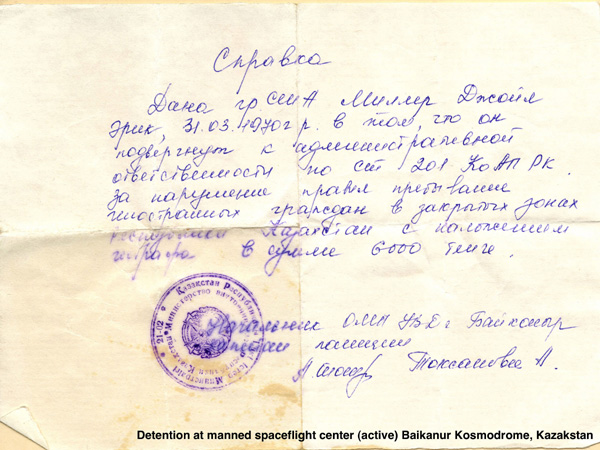 Справка
Дана гр США Миллер Джойл
Эрик, 31.03.1970г р. в том, что он
подвергнут к административной
ответственности по ст 201 КоАП РК.
за нарушение правил пребывание
иностранных граждан в закрытых зонах
Республики Казахстан с наложением
штрафа в сумме 6000 тенге.
Начальник ОМП УВД г Байконыр
капитан полиции
Токсанова А.
Қазақстан Республикасы
21-02
Detention at manned spaceflight center (active) Baikanur Kosmodrome, Kazakstan